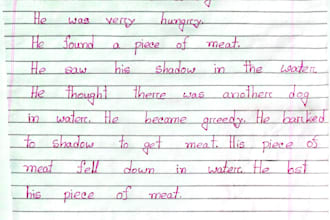 He was very hungry.
He found a piece of meat.
He saw his shadow in the water.
He thought there was another dog
in water. He became greedy. He barked
to shadow to get meat. His piece of
meat fell down in water. He lost
his piece of meat.